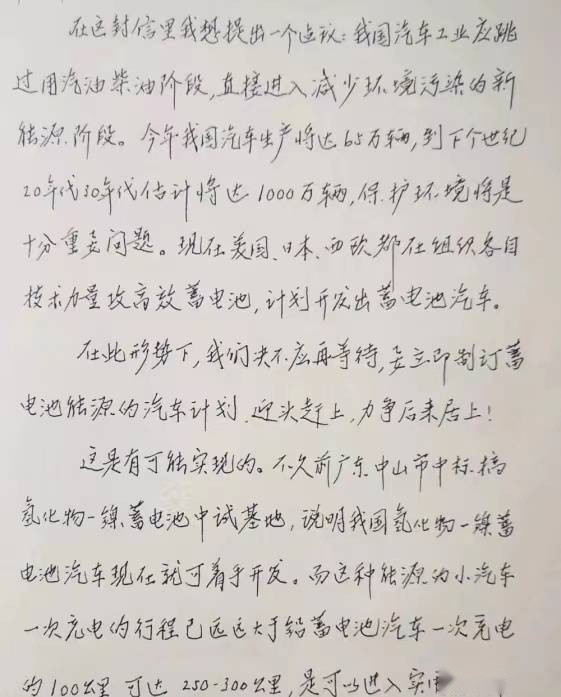 在这封信里我想提出一个建议：我国汽车工业应跳
过用汽油柴油阶段，直接进入减少环境污染的新
能源阶段。今年我国汽车生产将达65万辆，到下个世纪
20年代30年代估计将达1000万辆，保护环境将是
十分重要问题。现在美国、日本、西欧都在组织各自
技术力量攻高效蓄电池，计划开发出蓄电池汽车。
在此形势下，我们决不应再等待，要立即制订蓄
电池能源的汽车计划，迎头赶上，力争后来居上！
这是有可能实现的。不久前广东中山市中标搞
氢化物-镍蓄电池中试基地，说明我国氢化物-镍蓄
电池汽车现在就可着手开发。而这种能源的小汽车
一次充电的行程已远远大于铅蓄电池汽车一次充电
的100公里，可达250-300公里，是可以进入实